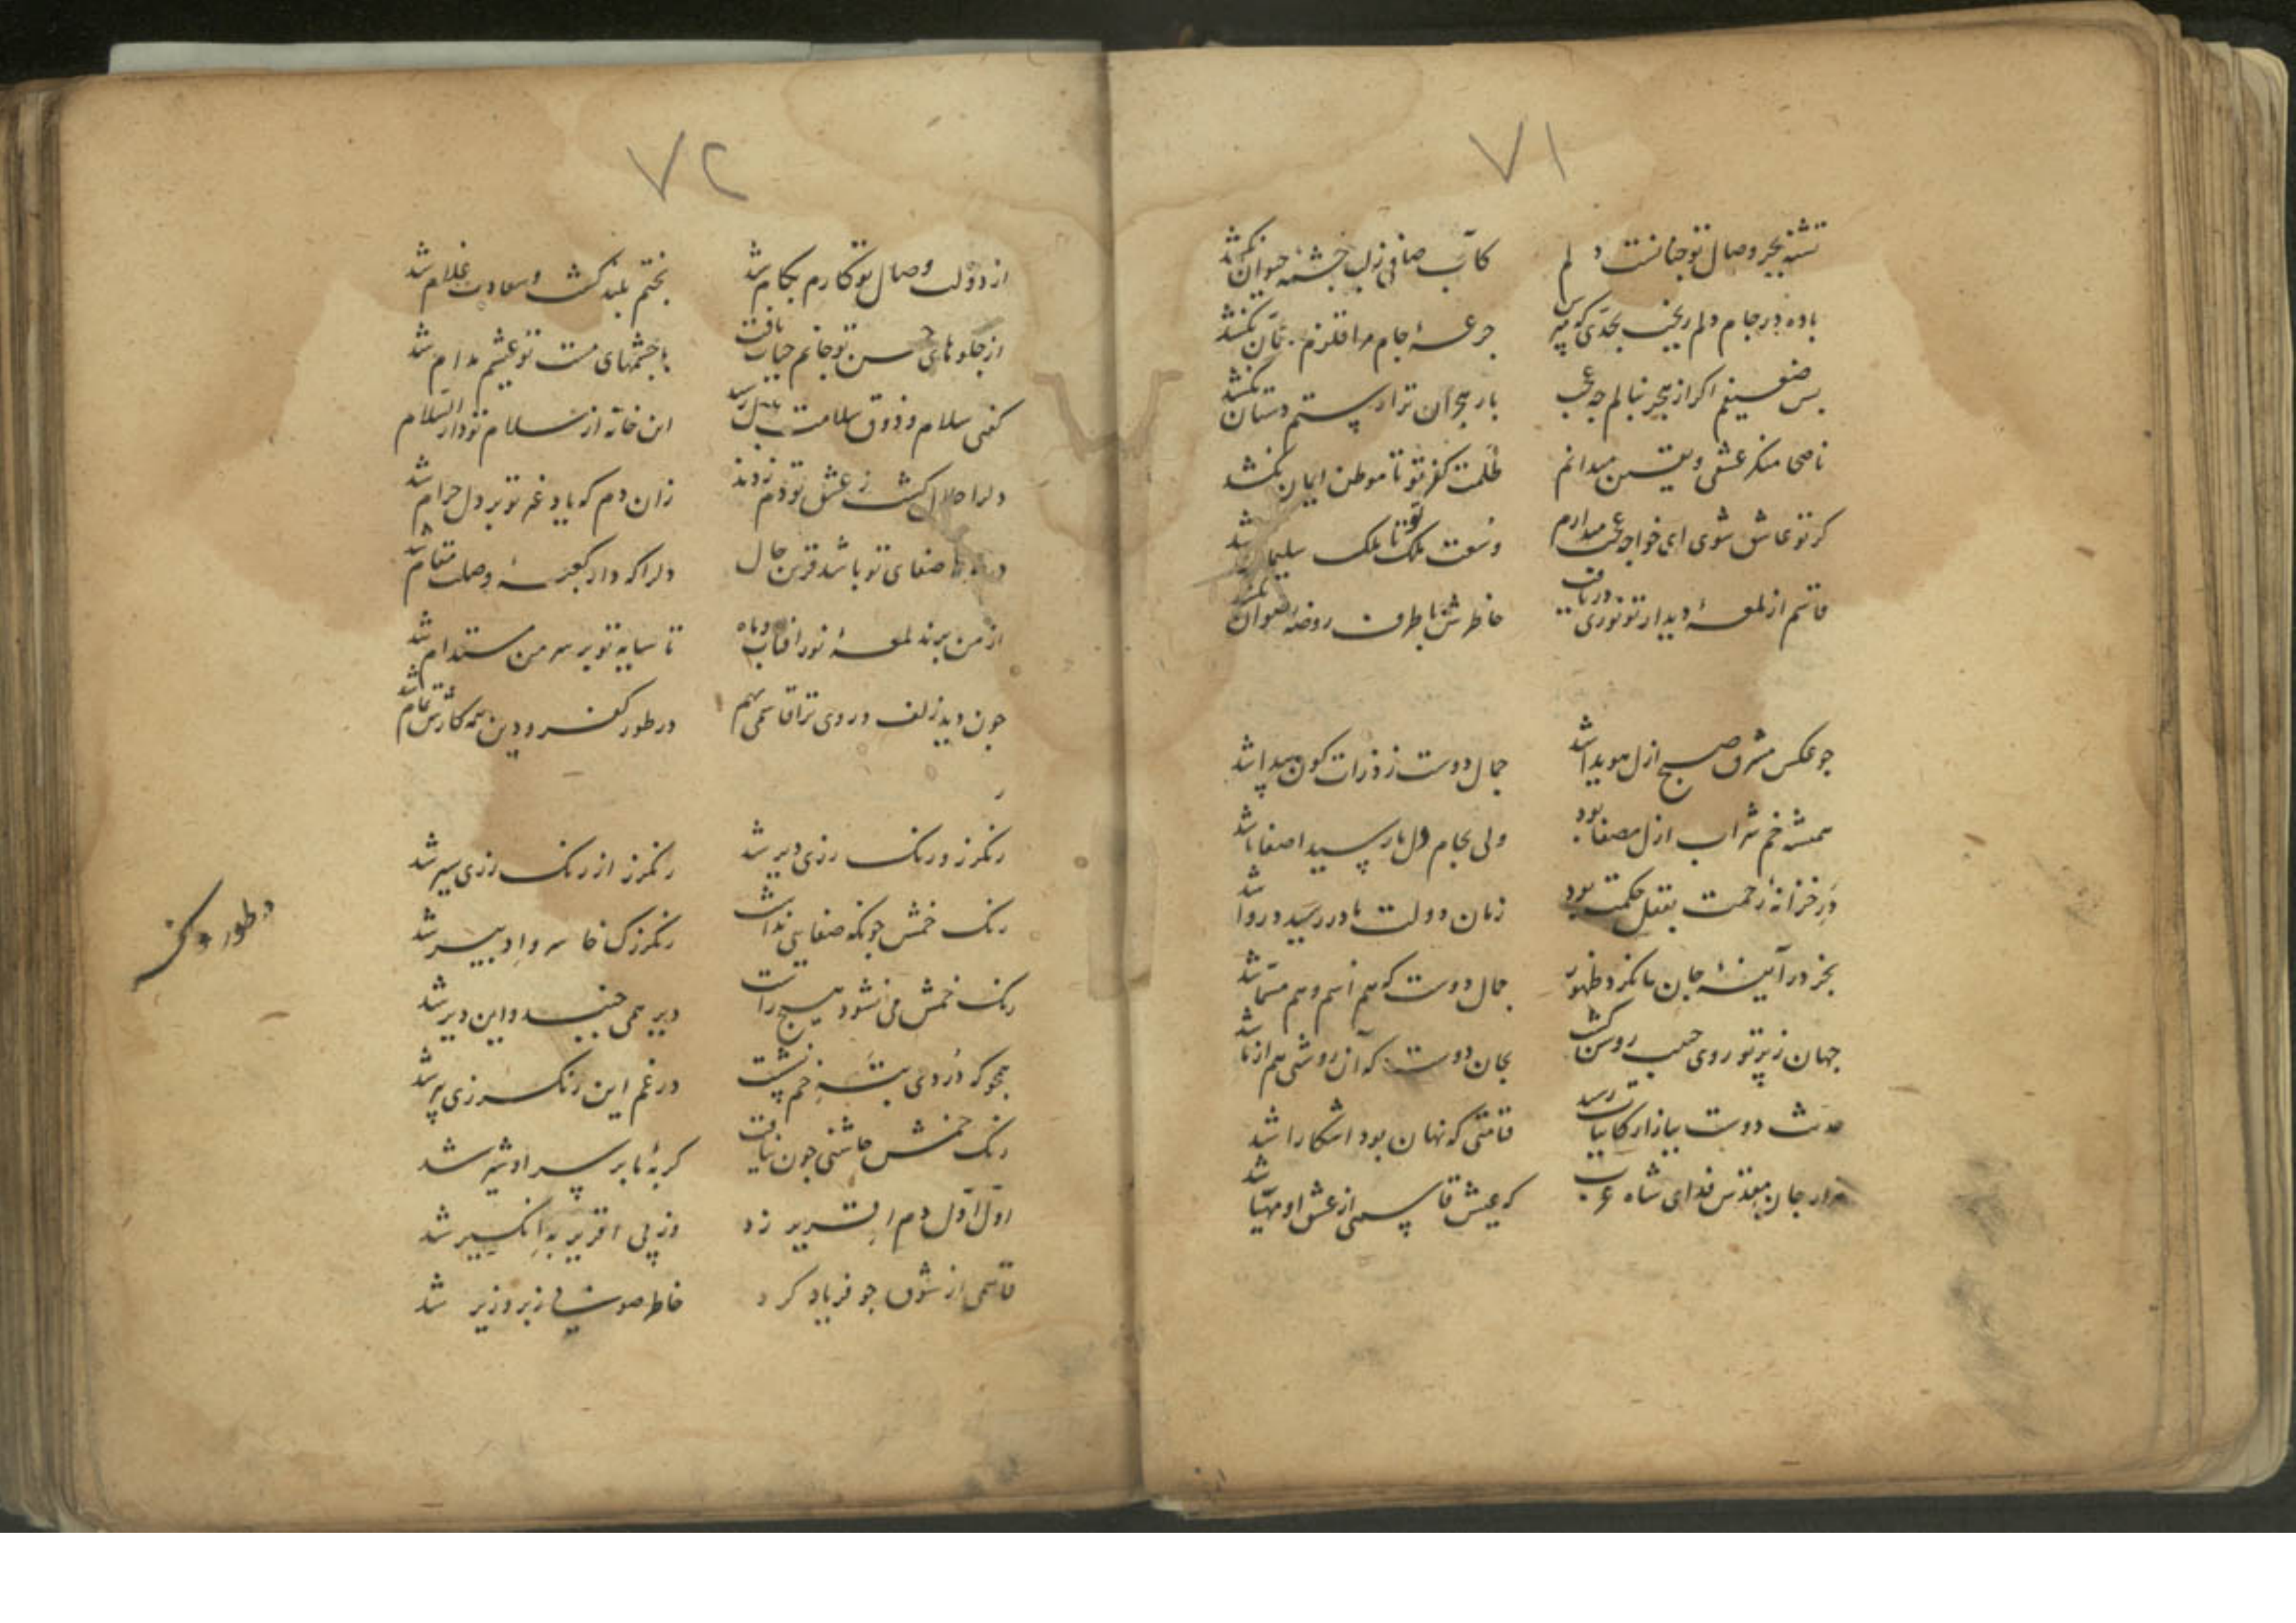 ۷۱
تشنه بحر وصال تو چنانست دلم کآب صافی ز لب چشمه حیوان نکشد
باده در جام دلم ریخت بحدی که مپرس جرعهٔ جام مرا قلزم و عمان نکشد
بس ضعیفم اکر از هجر بنالم چه عجب بار هجران ترا رستم دستان نکشد
ناصحا منکر عشقی و یقین میدانم ظلمت کفر تو تا موطن ایمان نکشد
کر تو عاشق شوی ای خواجه عجب میدارم وسعت ملک تو تا ملک سلیمان نکشد
قاسم از لمعهٔ دیدار تو نوری دریافت خاطرش با طرف روضه رضوان نکشد
چو عکس مشرق صبح ازل هویدا شد جمال دوست ز ذرات کون پیدا شد
همیشه خم شراب ازل مصفا بود ولی بجام دل ما رسید اصفا شد
در خزانهٔ رحمت بقفل حکمت بود زمان دولت ما در رسید و در وا شد
بجز در آیینهٔ جان ما نکرد ظهور جمال دوست که هم اسم و هم مسما شد
جهان ز پرتو روی حبیب روشن کشت بجان دوست که آن روشنی هم از ما شد
حدیث دوست ببازار کاینات رسید قیامتی که نهان بود اشکارا شد
هزار جان مقدس فدای شاه عرب که عیش قاسمی از عشق او مهیا شد
۷۲
از دولت وصال تو کارم بکام شد بختم بلند کشت و سعادت غلام شد
از جلوهای حسن تو جانم حیات یافت با چشمهای مست تو عیشم مدام شد
کفتی سلام و ذوق سلامت بدل رسید این خانه از سلام تو دار السلام شد
دلرا حلال کشت ز عشق تو دم زدند زان دم که یاد غیر تو بر دل حرام شد
صفای تو باشد قرین حال دلرا که در کعبهٔ وصلت مقام شد
از من برند لمعهٔ نور افتاب و ماه تا سایه تو بر سر من مستدام شد
چون دید زلف و روی ترا قاسمی بهم در طور کفر و دین همه کارش تمام شد
رنکرز و رنک رزی دیر شد رنکرز از رنک رزی سیر شد
رنک خمش چونکه صفایی نداشت رنکرزک خاسر و ادبیر شد
رنک خمش می نشود هیچ راست دیر همی جنبد و این دیر شد
همچو که دردی بته خم نشست در غم این رنک رزی پیر شد
رنک خمش چاشنی چون نیافت کربهٔ ما بر سر او شیر شد
اول اول دم اقریر زد وز پی اقریر به انکیر شد
قاسمی از شوق چو فریاد کرد خاطر صوفی ز بر و زیر شد
در طور